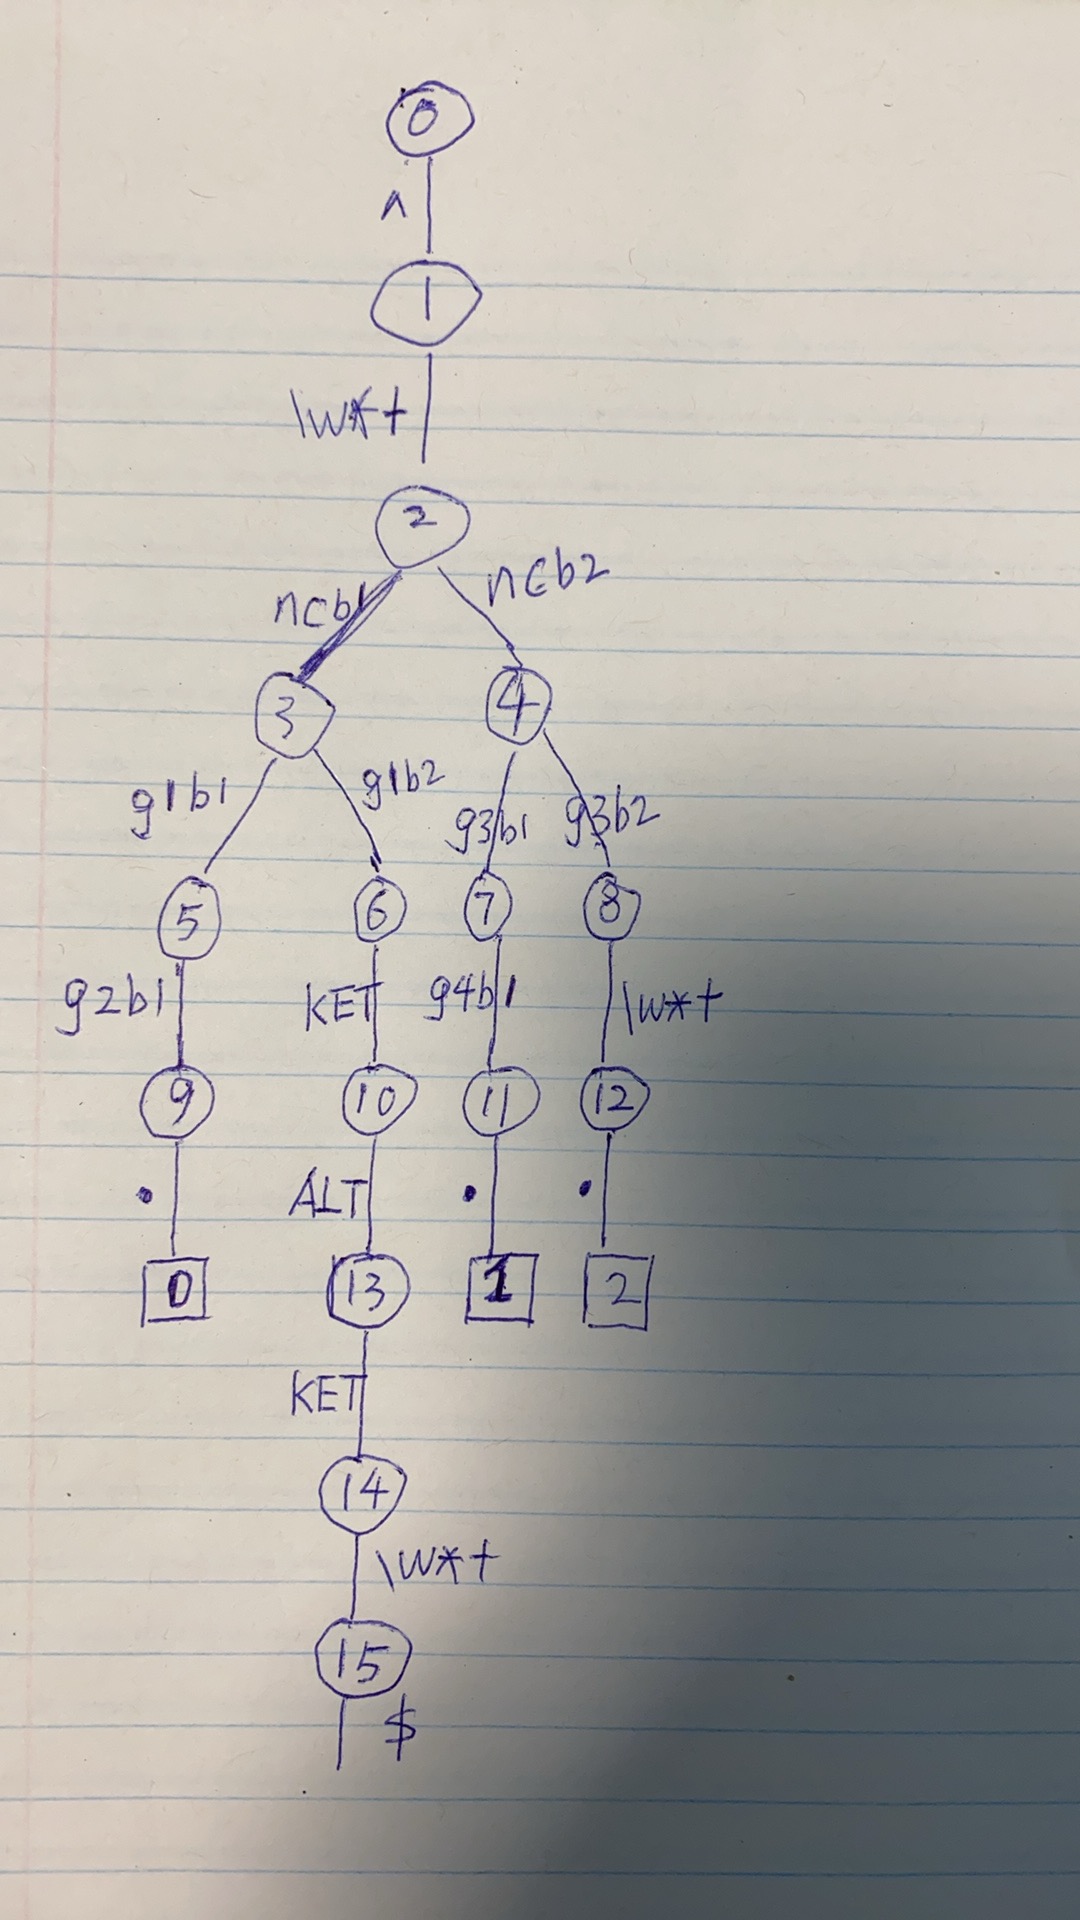 0
^
1
\w*+
2
ncb1 ncb2
3 4
g1b1 g1b2 g3b1 g3b2
5 6 7 8
g2b1 KET g4b1 \w*+
9 10 11 12
• ALT • •
0 13 1 2
KET
14
\w*+
15
$